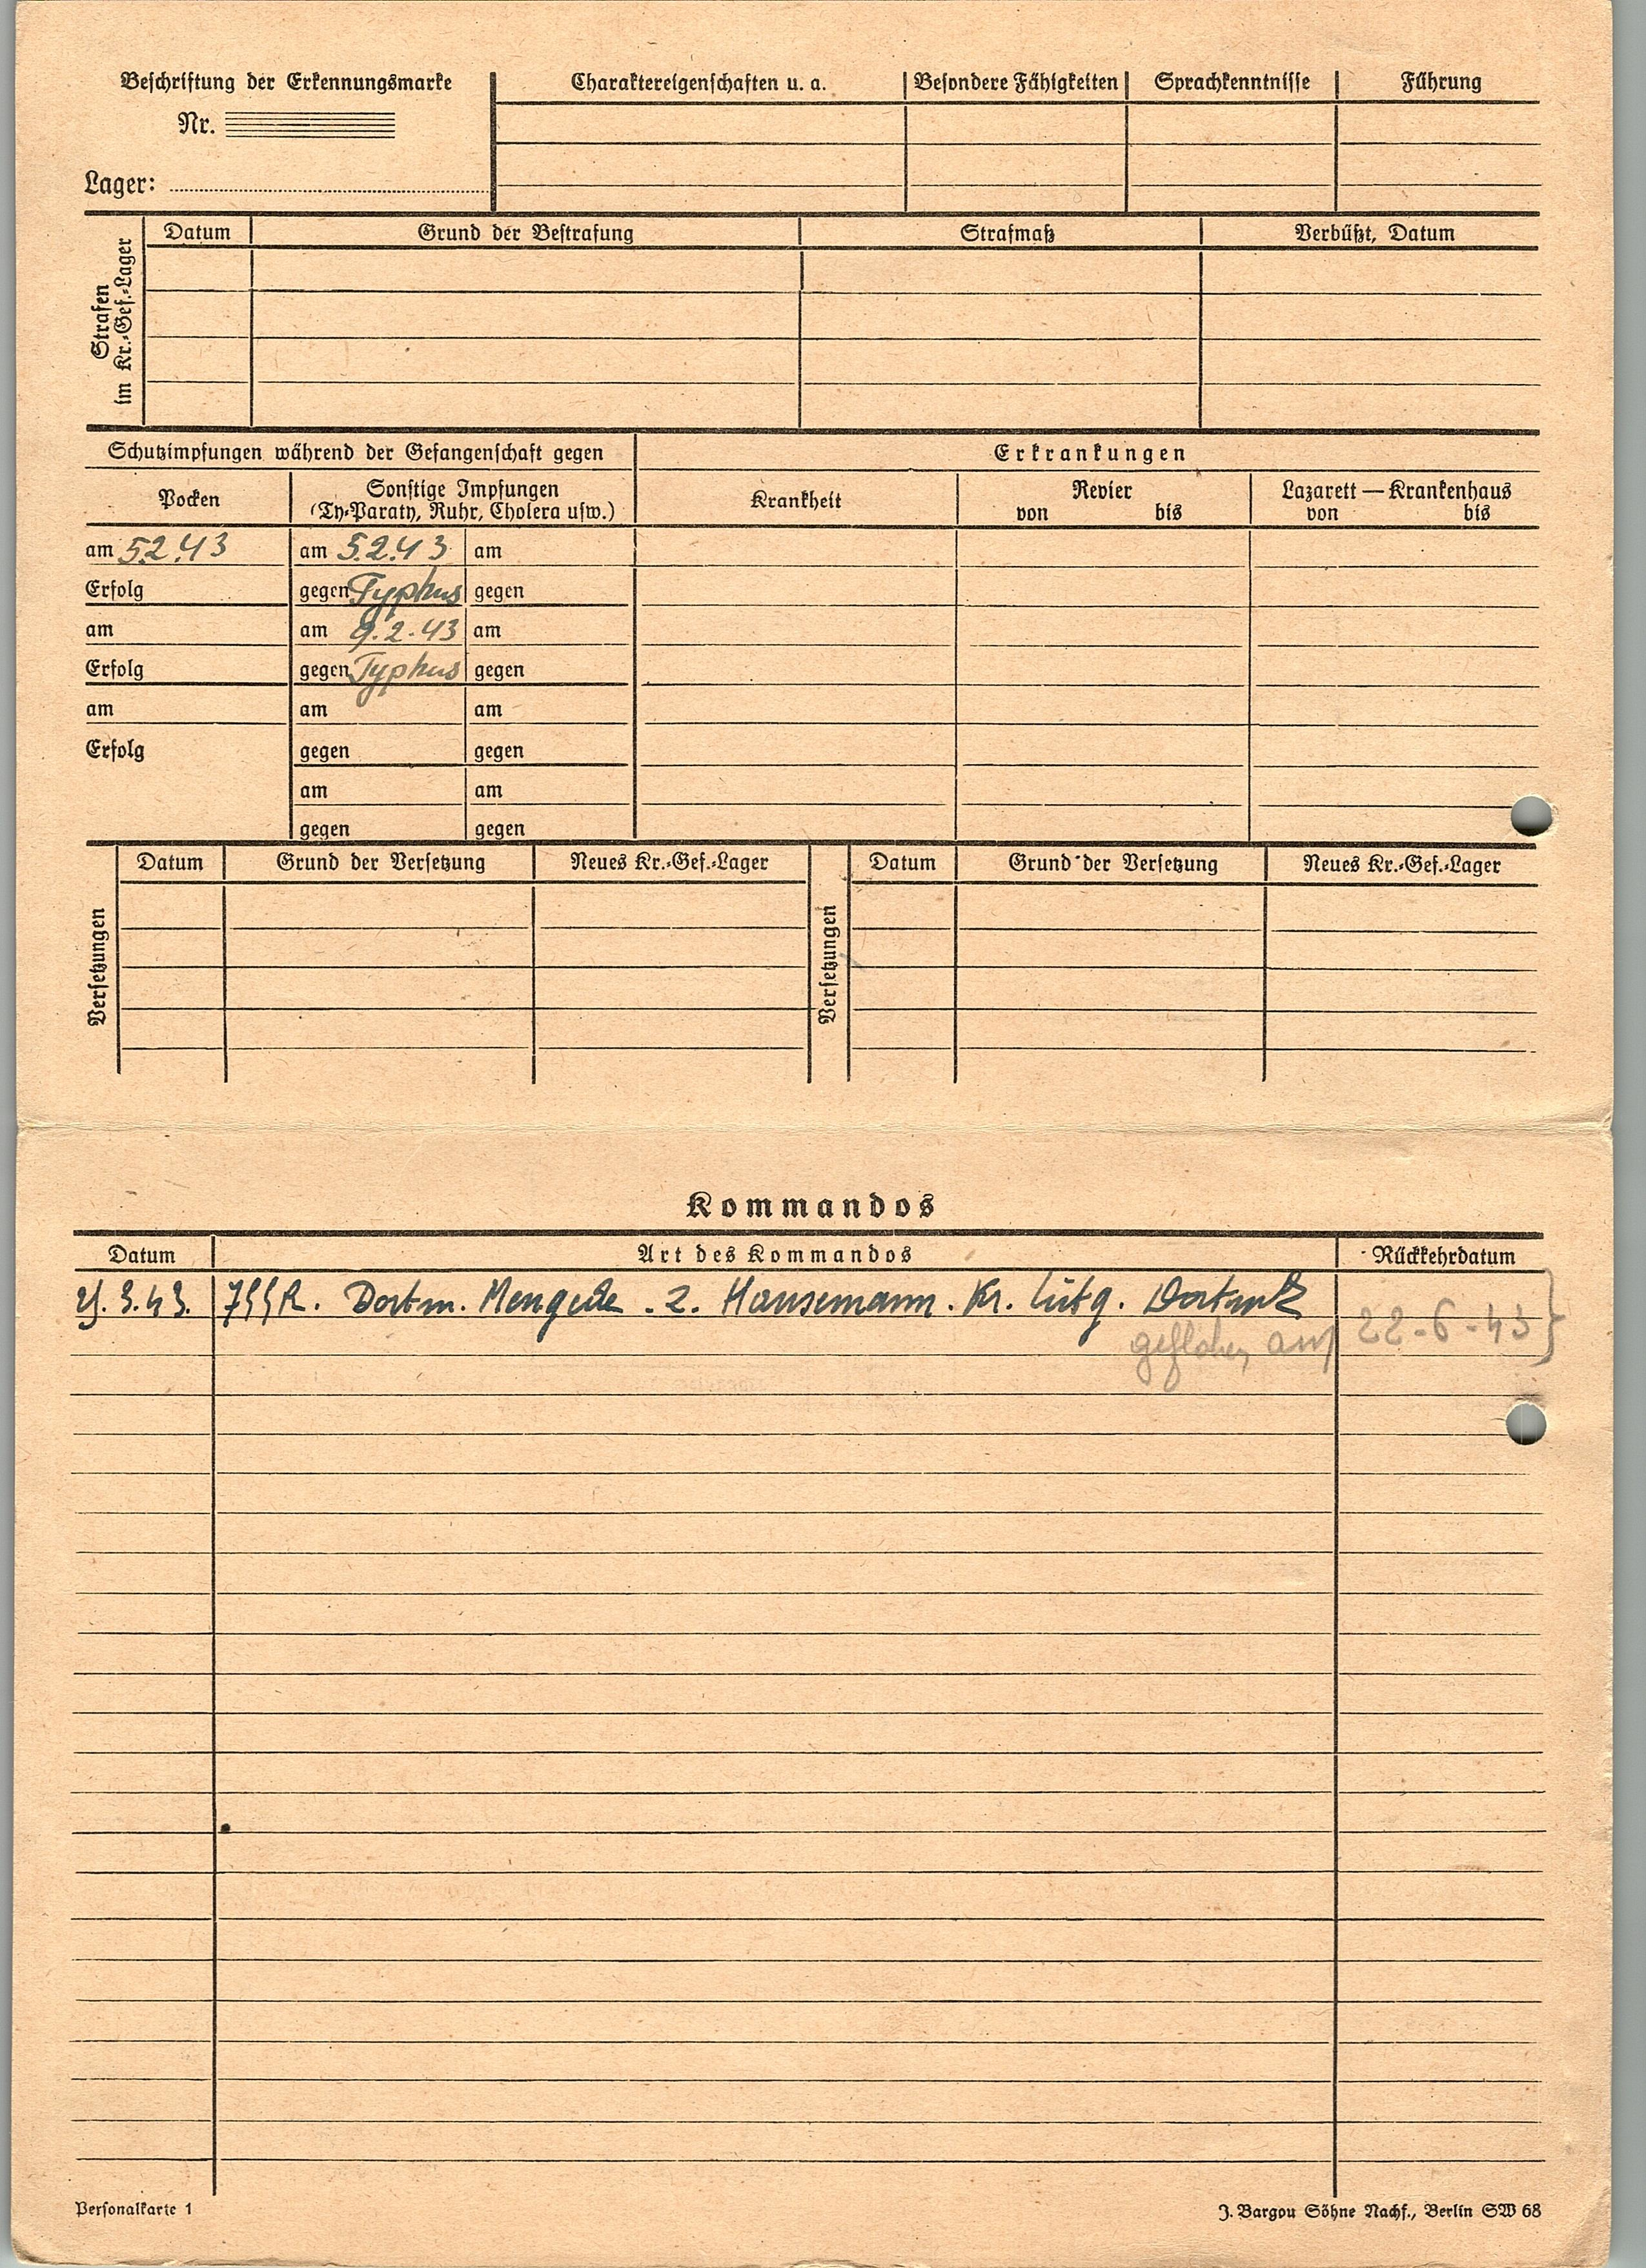 Beschriftung der Erkennungsmarke
Nr.
Lager:
Charaktereigenschaften u. a. Besondere Fähigkeiten Sprachkenntnisse Führung
Strafen
im Kr.-Gef.-Lager
Datum Grund der Bestrafung Strafmaß Verbüßt, Datum
Schutzimpfungen während der Gefangenschaft gegen Erkrankungen
Pocken Sonstige Impfungen Krankheit Revier Lazarett — Krankenhaus
(Ty-Paraty, Ruhr, Cholera usw.) von bis von bis
am 5.2.43 am 5.2.43 am
Erfolg gegen Typhus gegen
am am 9.2.43 am
Erfolg gegen Typhus gegen
am am am
Erfolg gegen gegen
am am
gegen gegen
Versetzungen
Datum Grund der Versetzung Neues Kr.-Gef.-Lager
Versetzungen
Datum Grund der Versetzung Neues Kr.-Gef.-Lager
Kommandos
Datum Art des Kommandos Rückkehrdatum
3.43. R. Dortm. Mengede . Z. Hansemann . Kr. Lütg. Dortmd
geflohen am 22-6-43
Personalkarte 1
J. Bargou Söhne Nachf., Berlin SW 68